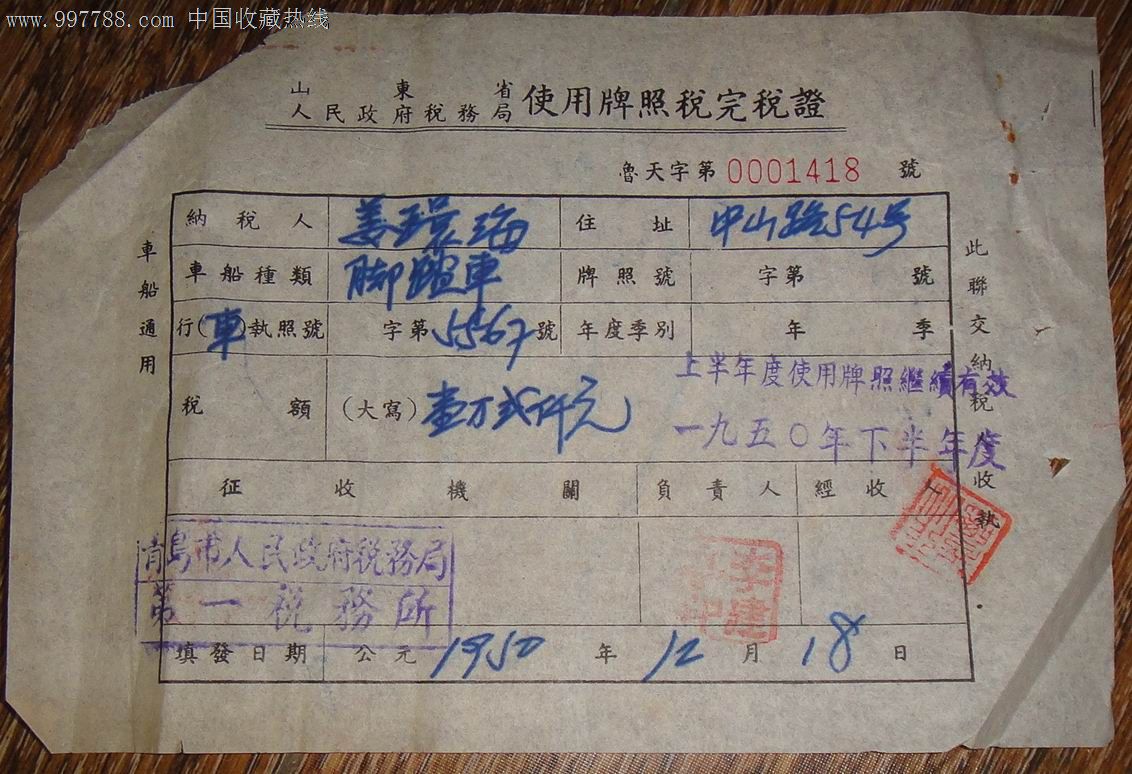 www.997788.com 中国收藏热线
山東省
人民政府稅務局 使用牌照稅完稅證
魯天字第0001418號
納稅人 姜璟海 住址 中山路54号
車船種類 脚踏車 牌照號 字第 號
行(車)執照號 字第5567號 年度季別 年 季
稅額 (大寫)壹万弍仟元
上半年度使用牌照繼續有效
一九五〇年下半年度
征收機關 負責人 經收人
青島市人民政府税務局
第一税務所
填發日期 公元1950年12月18日
車船通用
此聯交納稅人收執